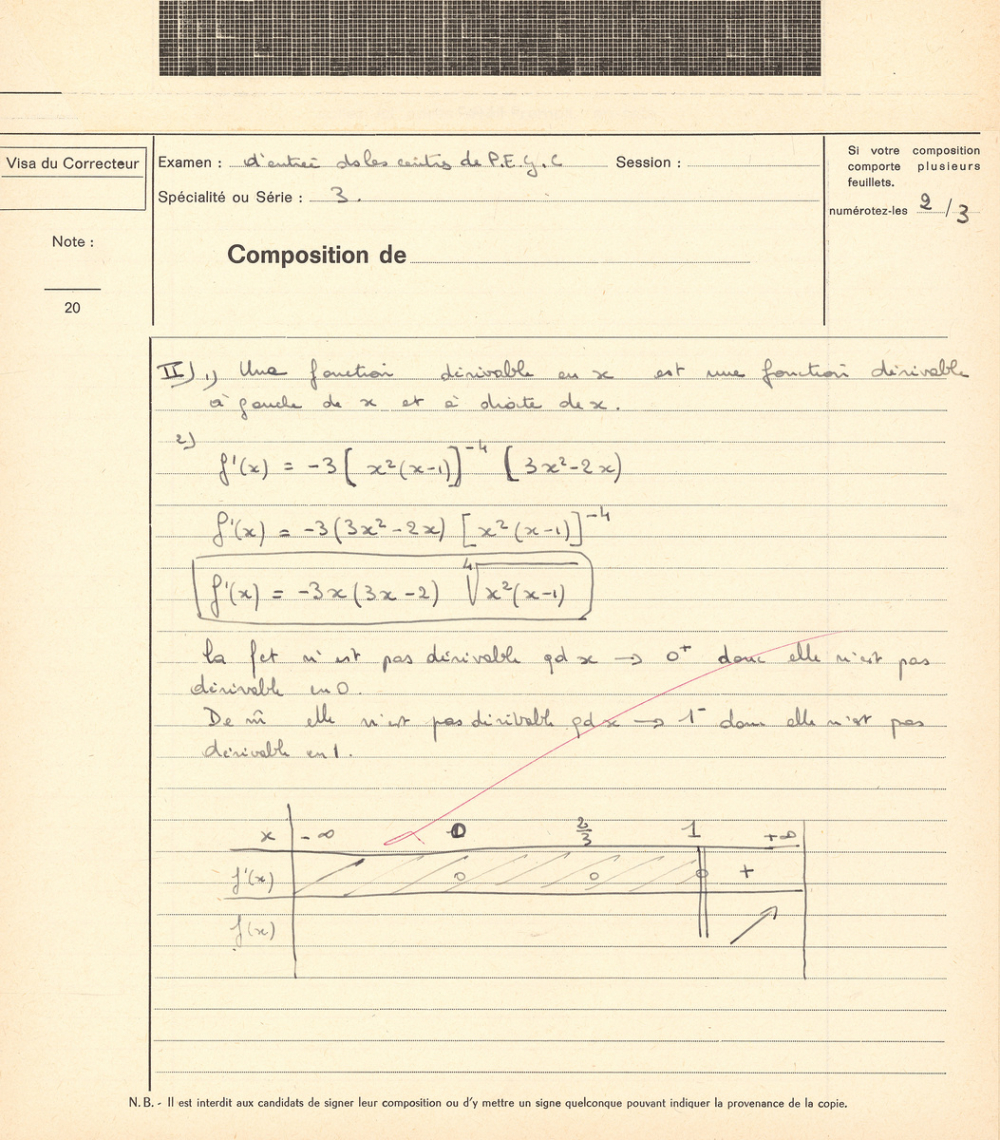 Visa du Correcteur
Examen : d'entrée ds les centres de P.E.G.C Session :
Spécialité ou Série : 3.
Si votre composition
comporte plusieurs
feuillets.
numérotez-les 2/3
Note :
20
Composition de
II) 1) Une fonction dérivable en x est une fonction dérivable
à gauche de x et à droite de x.
2)
f'(x) = -3 [ x²(x-1)]⁻⁴ (3x²-2x)
f'(x) = -3(3x²-2x) [x²(x-1)]⁻⁴
f'(x) = -3x(3x-2) ⁴√x²(x-1)
la fct n'est pas dérivable qd x → 0⁺ donc elle n'est pas
dérivable en 0.
De m̂ elle n'est pas dérivable qd x → 1⁻ donc elle n'est pas
dérivable en 1.
x -∞ 0 2/3 1 +∞
f'(x) 0 0 0 +
f(x)
N. B. - Il est interdit aux candidats de signer leur composition ou d'y mettre un signe quelconque pouvant indiquer la provenance de la copie.